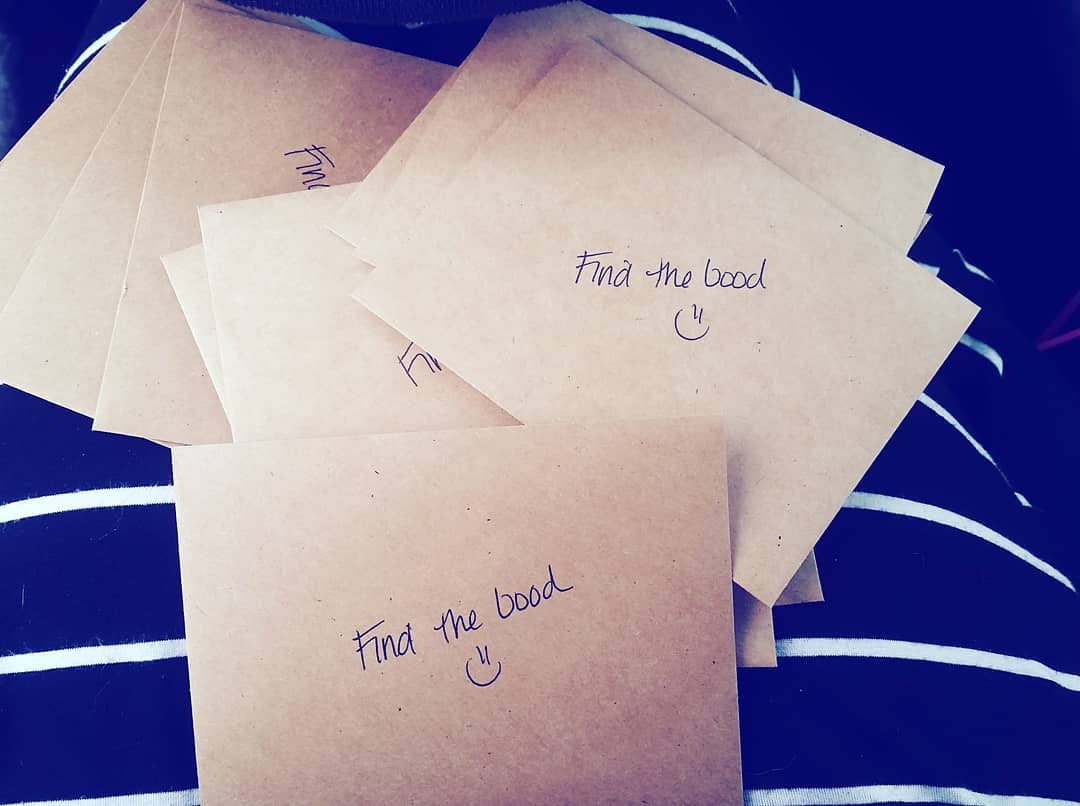 Find
Find the Good
Fin
Find the Good